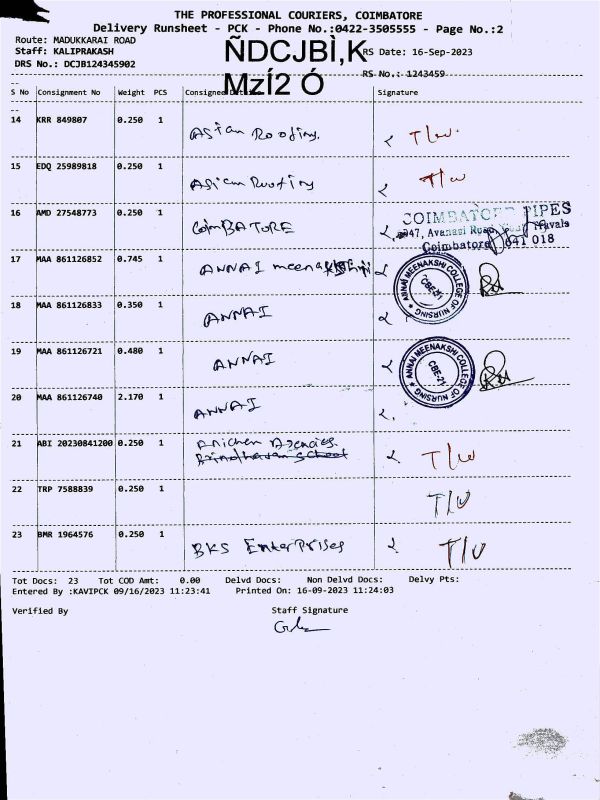 THE PROFESSIONAL COURIERS, COIMBATORE
Delivery Runsheet - PCK - Phone No.:0422-3505555 - Page No.:2
Route: MADUKKARAI ROAD
Staff: KALIPRAKASH ÑDCJBÌ,K RS Date: 16-Sep-2023
DRS No.: DCJB124345902 MzÍ2 Ó RS No.: 1243459
S No Consignment No Weight PCS Consignee Signature
14 KRR 849807 0.250 1 Asian Roofing.
15 EDQ 25989818 0.250 1 Asian Roofing
16 AMD 27548773 0.250 1 COIMBATORE COIMBATORE PIPES
Coimbatore 641 018
17 MAA 861126852 0.745 1 ANNAI meenakshi ANNAI MEENAKSHI COLLEGE OF NURSING CBE-21
18 MAA 861126833 0.350 1 ANNAI
19 MAA 861126721 0.480 1 ANNAI ANNAI MEENAKSHI COLLEGE OF NURSING CBE-21
20 MAA 861126740 2.170 1 ANNAI
21 ABI 20230841200 0.250 1 Agencies
school
22 TRP 7588839 0.250 1
23 BMR 1964576 0.250 1 BKS Enterprises
Tot Docs: 23 Tot COD Amt: 0.00 Delvd Docs: Non Delvd Docs: Delvy Pts:
Entered By :KAVIPCK 09/16/2023 11:23:41 Printed On: 16-09-2023 11:24:03
Verified By Staff Signature